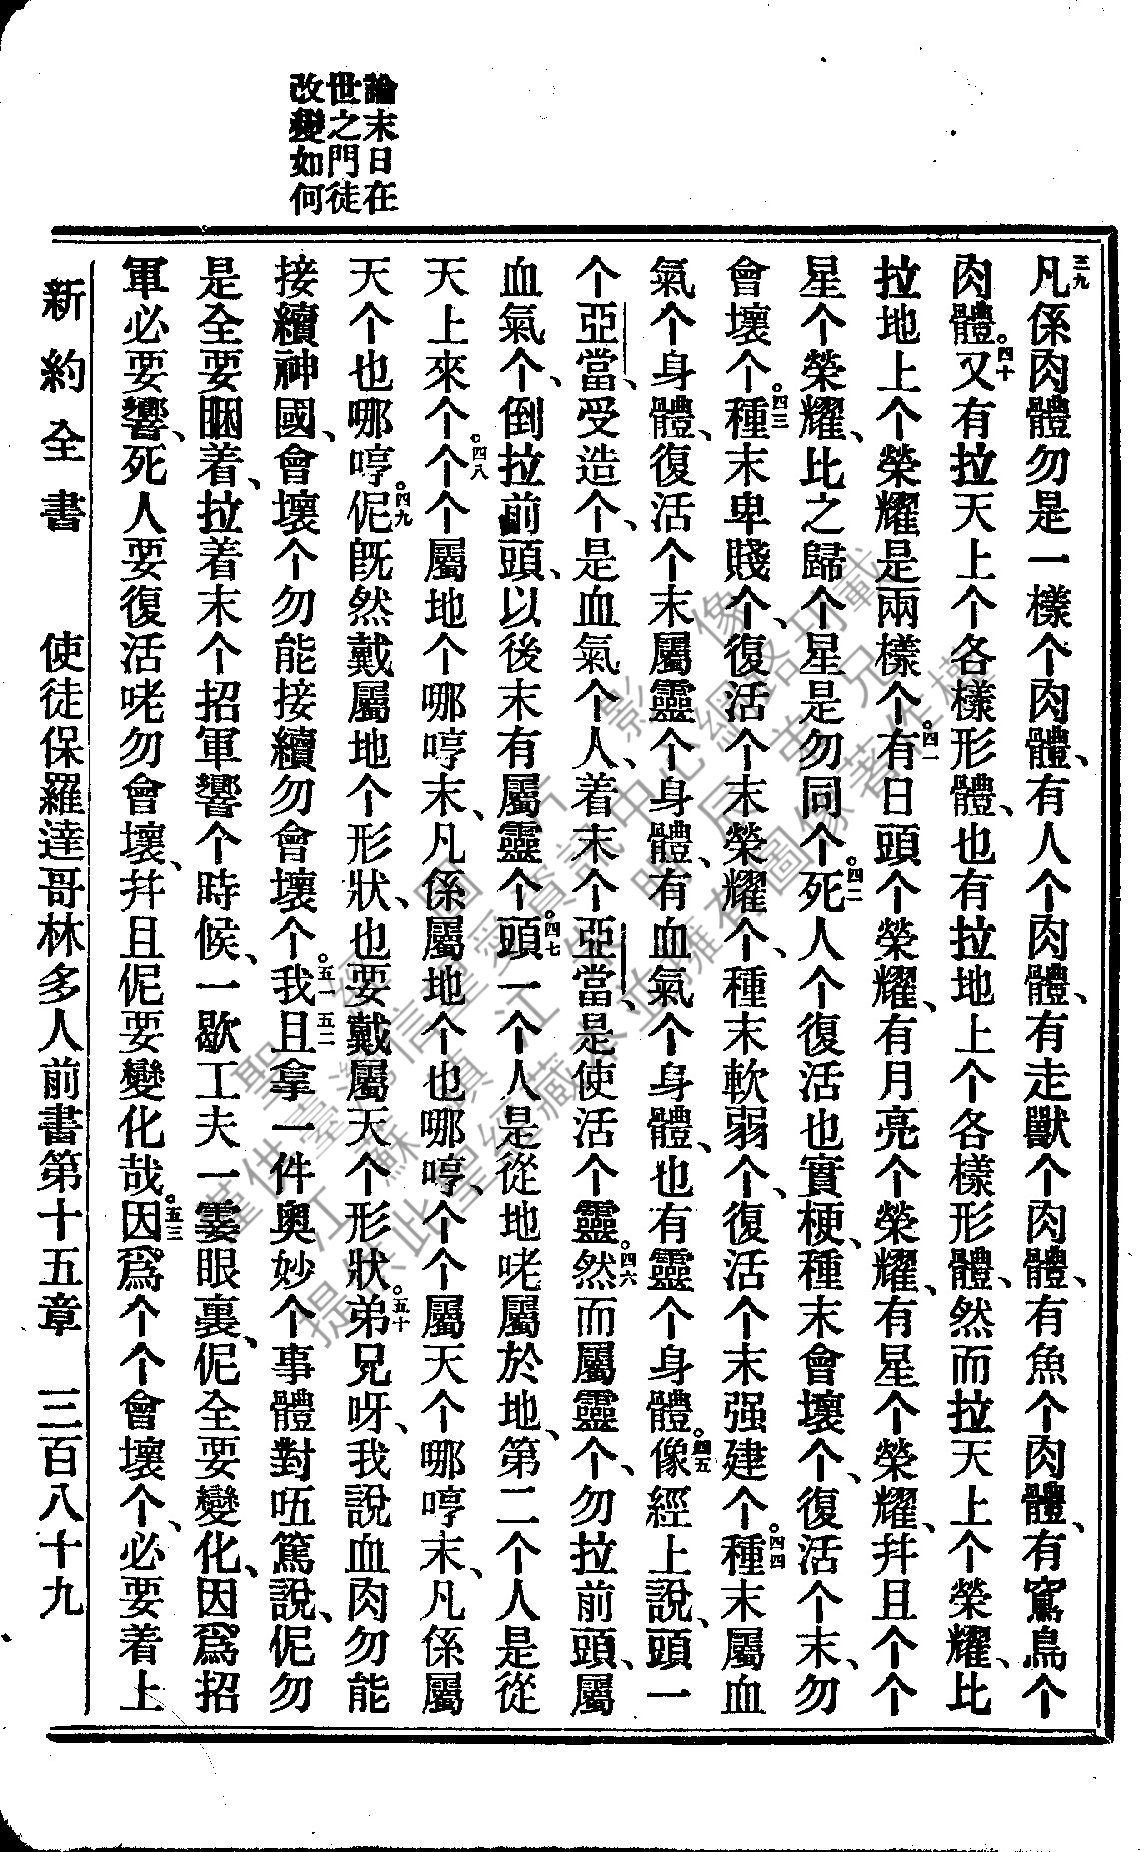 論末日在
世之門徒
改變如何
三九凡係肉體勿是一樣个肉體、有人个肉體、有走獸个肉體、有魚个肉體、有窵鳥个
肉體。四十又有拉天上个各樣形體、也有拉地上个各樣形體、然而拉天上个榮耀、比
拉地上个榮耀是兩樣个。四一有日頭个榮耀、有月亮个榮耀、有星个榮耀、幷且个个
星个榮耀、比之歸个星是勿同个。四二死人个復活也實梗、種末會壞个、復活个末、勿
會壞个。四三種末卑賤个、復活个末榮耀个、種末軟弱个、復活个末强建个。四四種末屬血
氣个身體、復活个末屬靈个身體、有血氣个身體、也有靈个身體。四五像經上說、頭一
个亞當、受造个、是血氣个人、着末个亞當、是使活个靈。四六然而屬靈个、勿拉前頭、屬
血氣个、倒拉前頭、以後末有屬靈个頭。四七一个人是從地咾屬於地、第二个人是從
天上來个。四八个个屬地个哪哼末、凡係屬地个也哪哼、个个屬天个哪哼末、凡係屬
天个也哪哼。四九伲旣然戴屬地个形狀、也要戴屬天个形狀。五十弟兄呀、我說血肉勿能
接續神國、會壞个勿能接續勿會壞个。五一我且五二拿一件奧妙个事體對㕶篤說、伲勿
是全要睏着、拉着末个招軍響个時候、一歇工夫一霎眼裏、伲全要變化、因爲招
軍必要響、死人要復活咾勿會壞、幷且伲要變化哉。五三因爲个个會壞个、必要着上
新約全書 使徒保羅達哥林多人前書第十五章 三百八十九
聖經圖片影像
僅供臺灣信望愛資訊中心網路刊載
江蘇鎮江
提供此聖經藏本並擁有圖像著作權